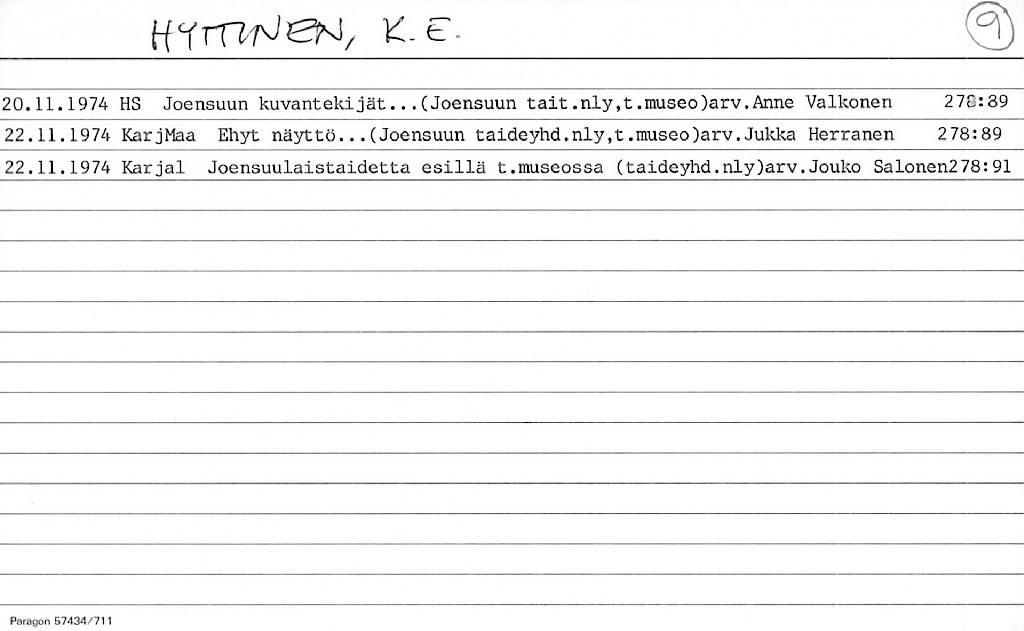 HYTTINEN, K. E. 9
20.11.1974 HS Joensuun kuvantekijät...(Joensuun tait.nly,t.museo)arv.Anne Valkonen 278:89
22.11.1974 KarjMaa Ehyt näyttö...(Joensuun taideyhd.nly,t.museo)arv.Jukka Herranen 278:89
22.11.1974 Karjal Joensuulaistaidetta esillä t.museossa (taideyhd.nly)arv.Jouko Salonen278:91
Paragon 57434/711